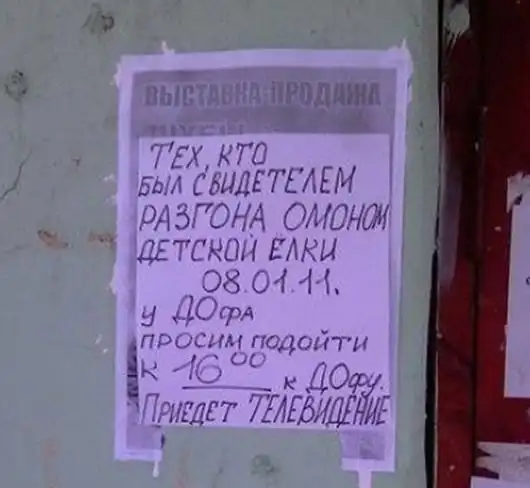 ВЫСТАВКА-ПРОДАЖА
ТЕХ, КТО
БЫЛ СВИДЕТЕЛЕМ
РАЗГОНА ОМОНОМ
ДЕТСКОЙ ЁЛКИ
08.01.11.
у ДОфА
ПРОСИМ ПОДОЙТИ
К 16 00 к ДОфу.
ПРИЕДЕТ ТЕЛЕВИДЕНИЕ